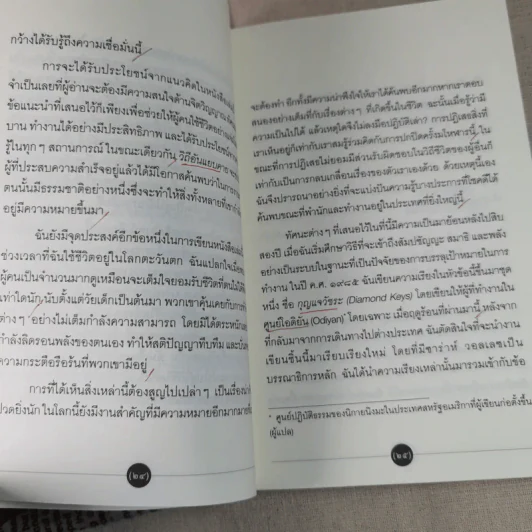 กว้างได้รับรู้ถึงความเชื่อมั่นนี้
การจะได้รับประโยชน์จากแนวคิดในหนังสือเล่ม
จำเป็นเลยที่ผู้อ่านจะต้องมีความสนใจด้านจิตวิญญาณ
ข้อแนะนำที่เสนอไว้ก็เพียงเพื่อช่วยให้ผู้คนใช้ชีวิตอย่าง
บาน ทำงานได้อย่างมีประสิทธิภาพ และได้รับประโยชน์
รู้ในทุกๆ สถานการณ์ ในขณะเดียวกัน วิถีอันแยบคาย
ผู้ที่ประสบความสำเร็จอยู่แล้วได้มีโอกาสค้นพบว่าในการ
ตนนั้นมีธรรมชาติอย่างหนึ่งซึ่งจะทำให้สิ่งทั้งหลายที่เขา
อยู่มีความหมายขึ้นมา
ฉันยังมีจุดประสงค์อีกข้อหนึ่งในการเขียนหนังสือ
ช่วงเวลาที่ฉันใช้ชีวิตอยู่ในโลกตะวันตก ฉันแปลกใจเมื่อ
ผู้คนเป็นจำนวนมากดูเหมือนจะเต็มใจยอมรับชีวิตที่ตนไม่ได้
เท่าใดนัก นับตั้งแต่วัยเด็กเป็นต้นมา พวกเขาคุ้นเคยกับการ
ต่างๆ อย่างไม่เต็มกำลังความสามารถ โดยมิได้ตระหนัก
กำลังลิดรอนพลังของตนเอง ทำให้สติปัญญาทึบทึม และ
ความกระตือรือร้นที่พวกเขามีอยู่
การที่ได้เห็นสิ่งเหล่านี้ต้องสูญไปเปล่าๆ เป็นเรื่อง
ปวดยิ่งนัก ในโลกนี้ยังมีงานสำคัญที่มีความหมายอีกมากมาย
(๒๔)
จะต้องทำ อีกทั้งมีความน่าพึงใจให้เราได้ค้นพบอีกมากหากเราตอบ
สนองอย่างเต็มที่กับเรื่องต่างๆ ที่เกิดขึ้นในชีวิต ฉะนั้นเมื่อรู้ว่ามี
ความเป็นไปได้ แล้วเหตุใดจึงไม่ลงมือปฏิบัติเล่า? การปฏิเสธสิ่งที่
เราเห็นอยู่ก็เท่ากับเราสมรู้ร่วมคิดกับการปกปิดครั้งใหญ่นี้ ใน
ขณะที่การปฏิเสธไม่ยอมมีส่วนรับผิดชอบในวิถีชีวิตของผู้อื่นก็
เท่ากับเป็นการกลบเกลื่อนเรื่องของตัวเราเองด้วย ด้วยเหตุนี้เอง
ฉันจึงปรารถนาอย่างยิ่งที่จะแบ่งปันความรู้บางประการที่โชคดีได้
ค้นพบขณะที่พำนักและทำงานอยู่ในประเทศที่ยิ่งใหญ่นี้
ทัศนะต่างๆ ที่เสนอไว้ในที่นี้มีความเป็นมาย้อนหลังไปสิบ
สองปี เมื่อฉันเริ่มศึกษาวิธีที่จะเข้าถึงสัมปชัญญะ สมาธิ และพลัง
อย่างเป็นระบบในฐานะที่เป็นปัจจัยของการบรรลุเป้าหมายในการ
ทำงาน ในปี ค.ศ. ๑๙๘๕ ฉันเขียนความเรียงในหัวข้อนี้ขึ้นมาชุด
หนึ่ง ชื่อ กุญแจวัชระ (Diamond Keys) โดยเขียนให้ผู้ที่ทำงานใน
ศูนย์โอดิยัน (Odiyan)* โดยเฉพาะ เมื่อฤดูร้อนที่ผ่านมานี้ หลังจาก
ที่กลับมาจากการเดินทางไปต่างประเทศ ฉันตัดสินใจที่จะนำงาน
เขียนชิ้นนี้มาเรียบเรียงใหม่ โดยที่มีซาร่าห์ วอลเลซเป็น
บรรณาธิการหลัก ฉันได้นำความเรียงเหล่านั้นมารวมเข้ากับข้อ
* ศูนย์ปฏิบัติธรรมของนิกายนิงมะในประเทศสหรัฐอเมริกาที่ผู้เขียนก่อตั้งขึ้น
(ผู้แปล)
(๒๕)